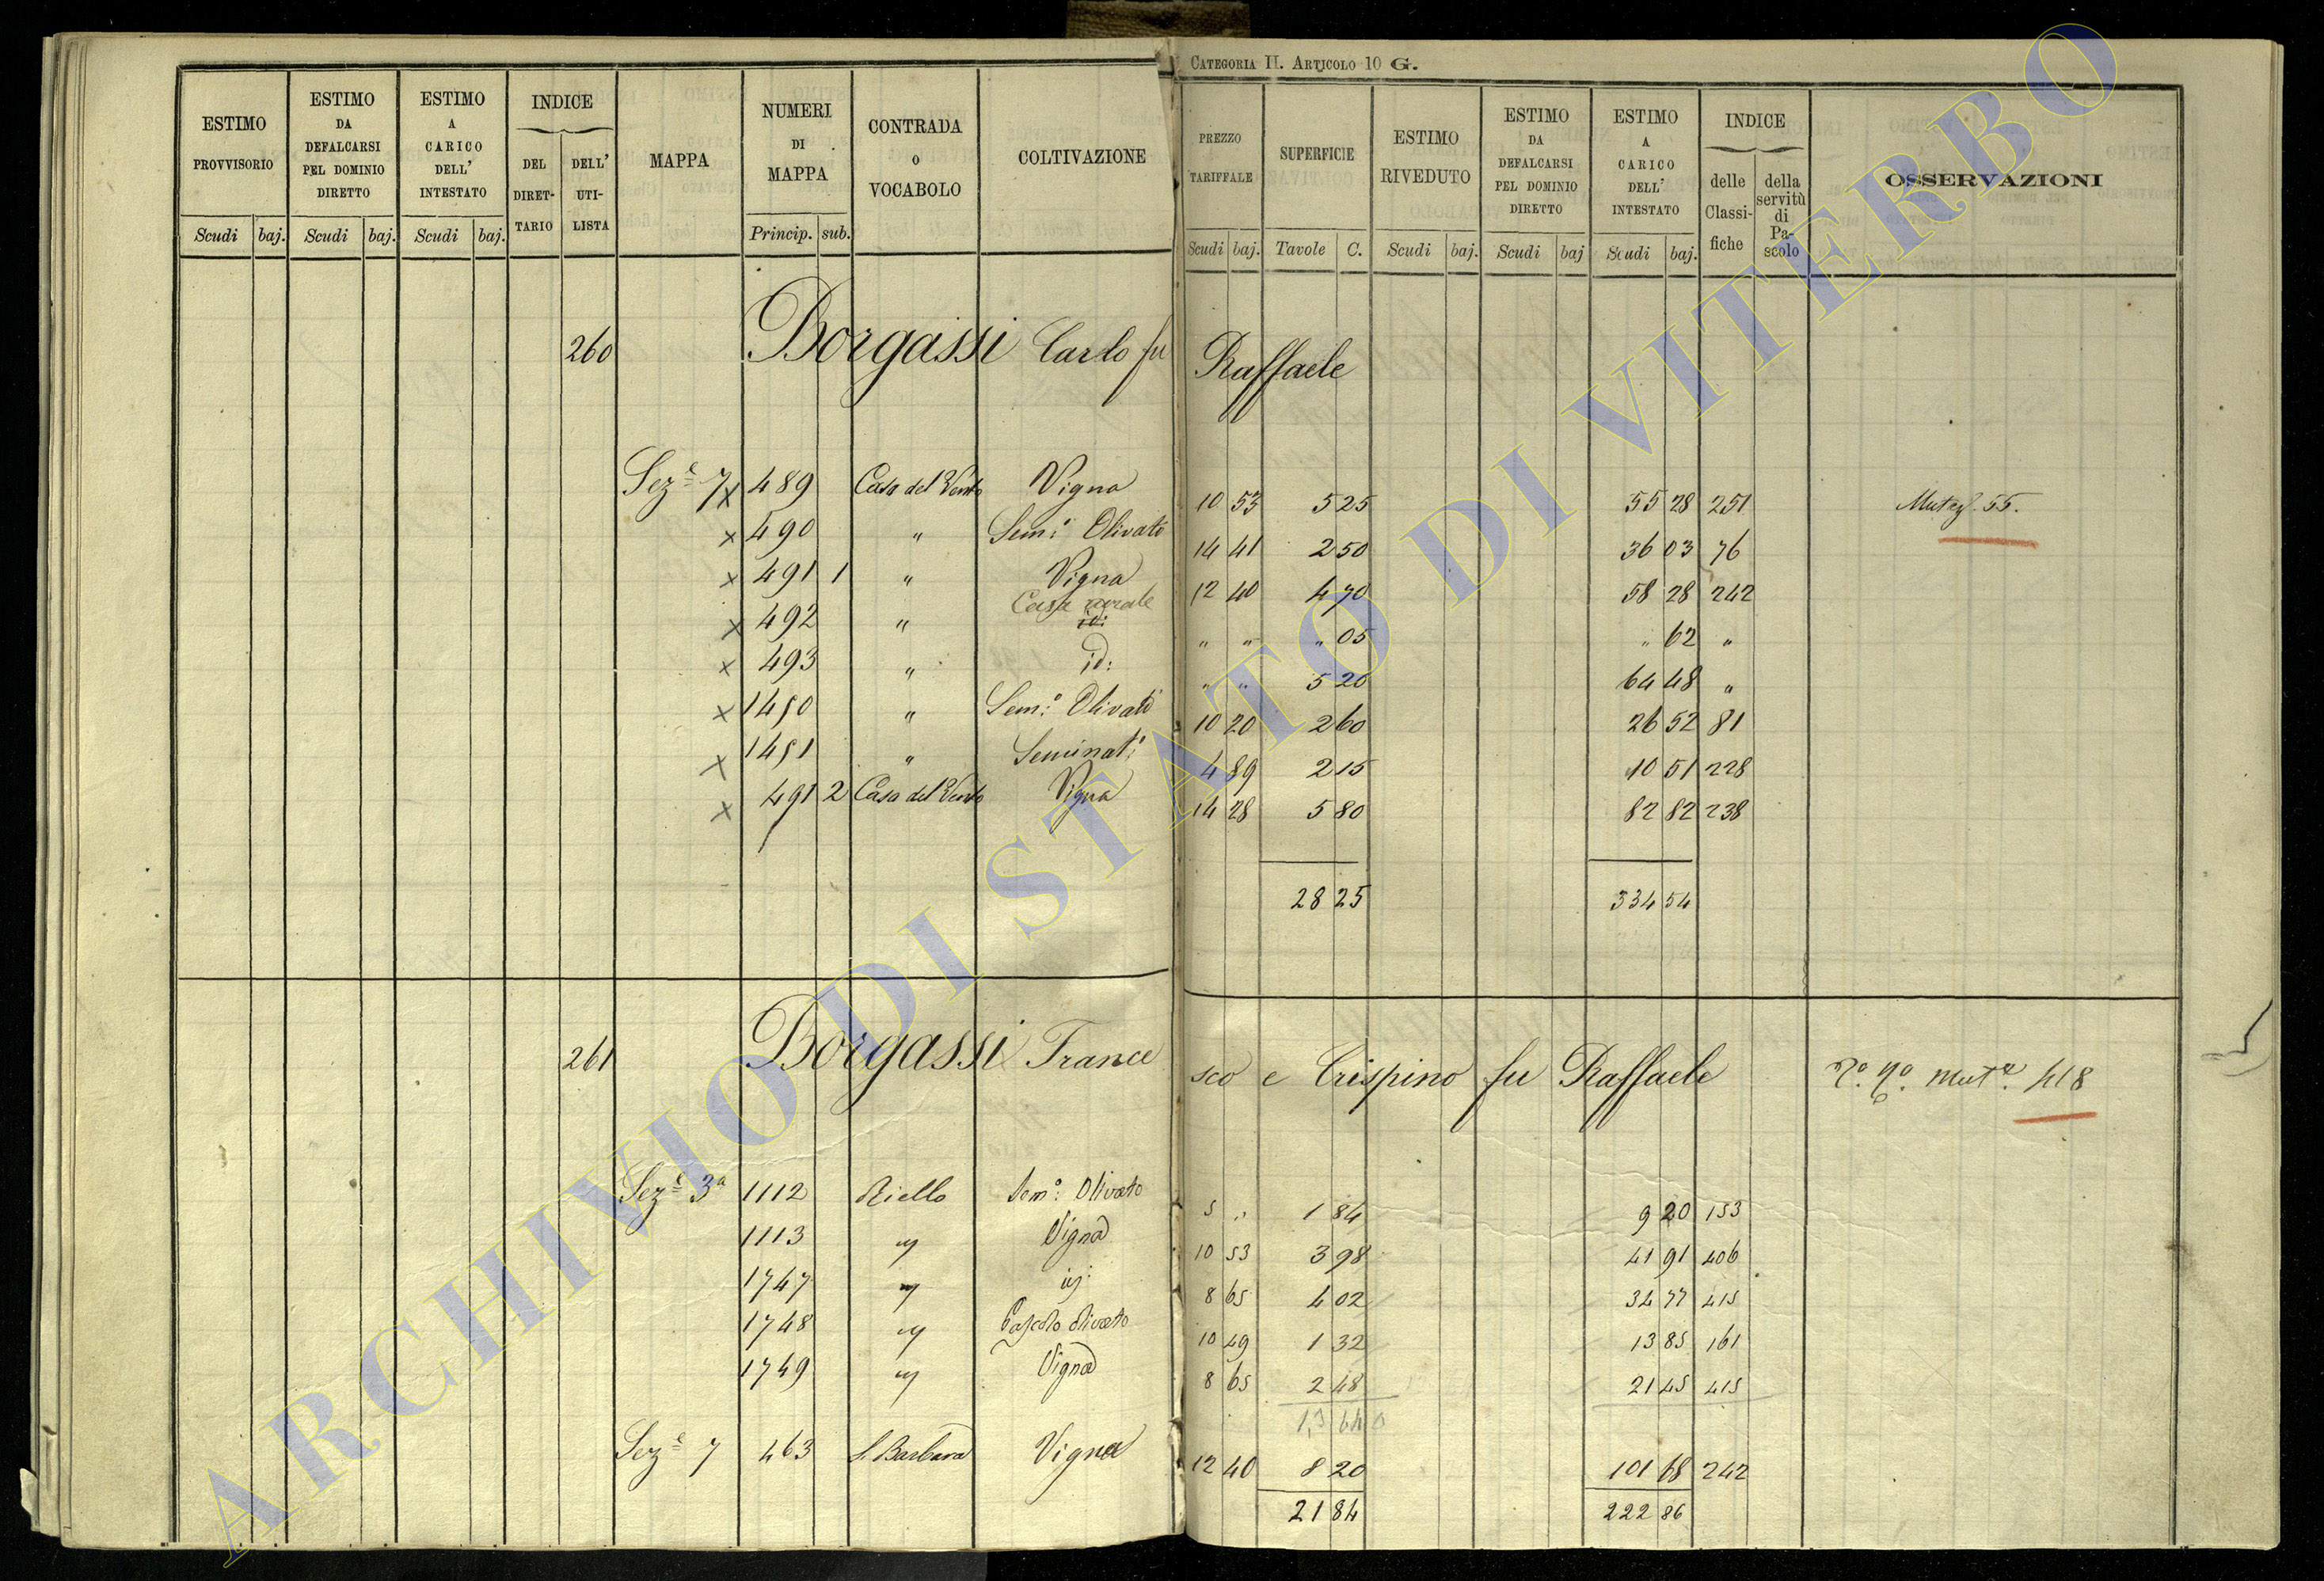 CATEGORIA II. ARTICOLO 10 G.
ESTIMO PROVVISORIO | ESTIMO DA DEFALCARSI PEL DOMINIO DIRETTO | ESTIMO A CARICO DELL' INTESTATO | INDICE DEL DIRET-TARIO | DELL' UTI-LISTA | MAPPA | NUMERI DI MAPPA | CONTRADA O VOCABOLO | COLTIVAZIONE | PREZZO TARIFFALE | SUPERFICIE | ESTIMO RIVEDUTO | ESTIMO DA DEFALCARSI PEL DOMINIO DIRETTO | ESTIMO A CARICO DELL' INTESTATO | INDICE delle Classi-fiche | della servitù di Pa-scolo | OSSERVAZIONI
Scudi baj. Scudi baj. Scudi baj. Princip. sub. Scudi baj. Tavole C. Scudi baj. Scudi baj Scudi baj.
260 Borgassi Carlo fu Raffaele
Sez.e 7 x 489 Casa del Vento Vigna 10 53 5 25 55 28 251 55.
x 490 " Sem.o Olivato 14 41 2 50 36 03 76
x 491 1 " Vigna 12 40 4 70 58 28 242
x 492 " Casa rurale id: " " " 05 " 62 "
x 493 " id: " " 5 20 64 48 "
x 1450 " Sem.o Olivato 10 20 2 60 26 52 81
x 1451 " Seminat.o 4 89 2 15 10 51 228
x 491 2 Casa del Vento Vigna 14 28 5 80 82 82 238
28 25 334 54
261 Borgassi Francesco e Crispino fu Raffaele 418
Sez.e 3a 1112 Riello Sem.o Olivato 5 " 1 84 9 20 153
1113 " Vigna 10 53 3 98 41 91 406
1747 " id: 8 65 4 02 34 77 415
1748 " Pascolo olivato 10 49 1 32 13 85 161
1749 " Vigna 8 65 2 48 21 45 415
Sez.e 7 463 S. Barbara Vigna 12 40 8 20 101 68 242
21 84 222 86
ARCHIVIO DI STATO DI VITERBO